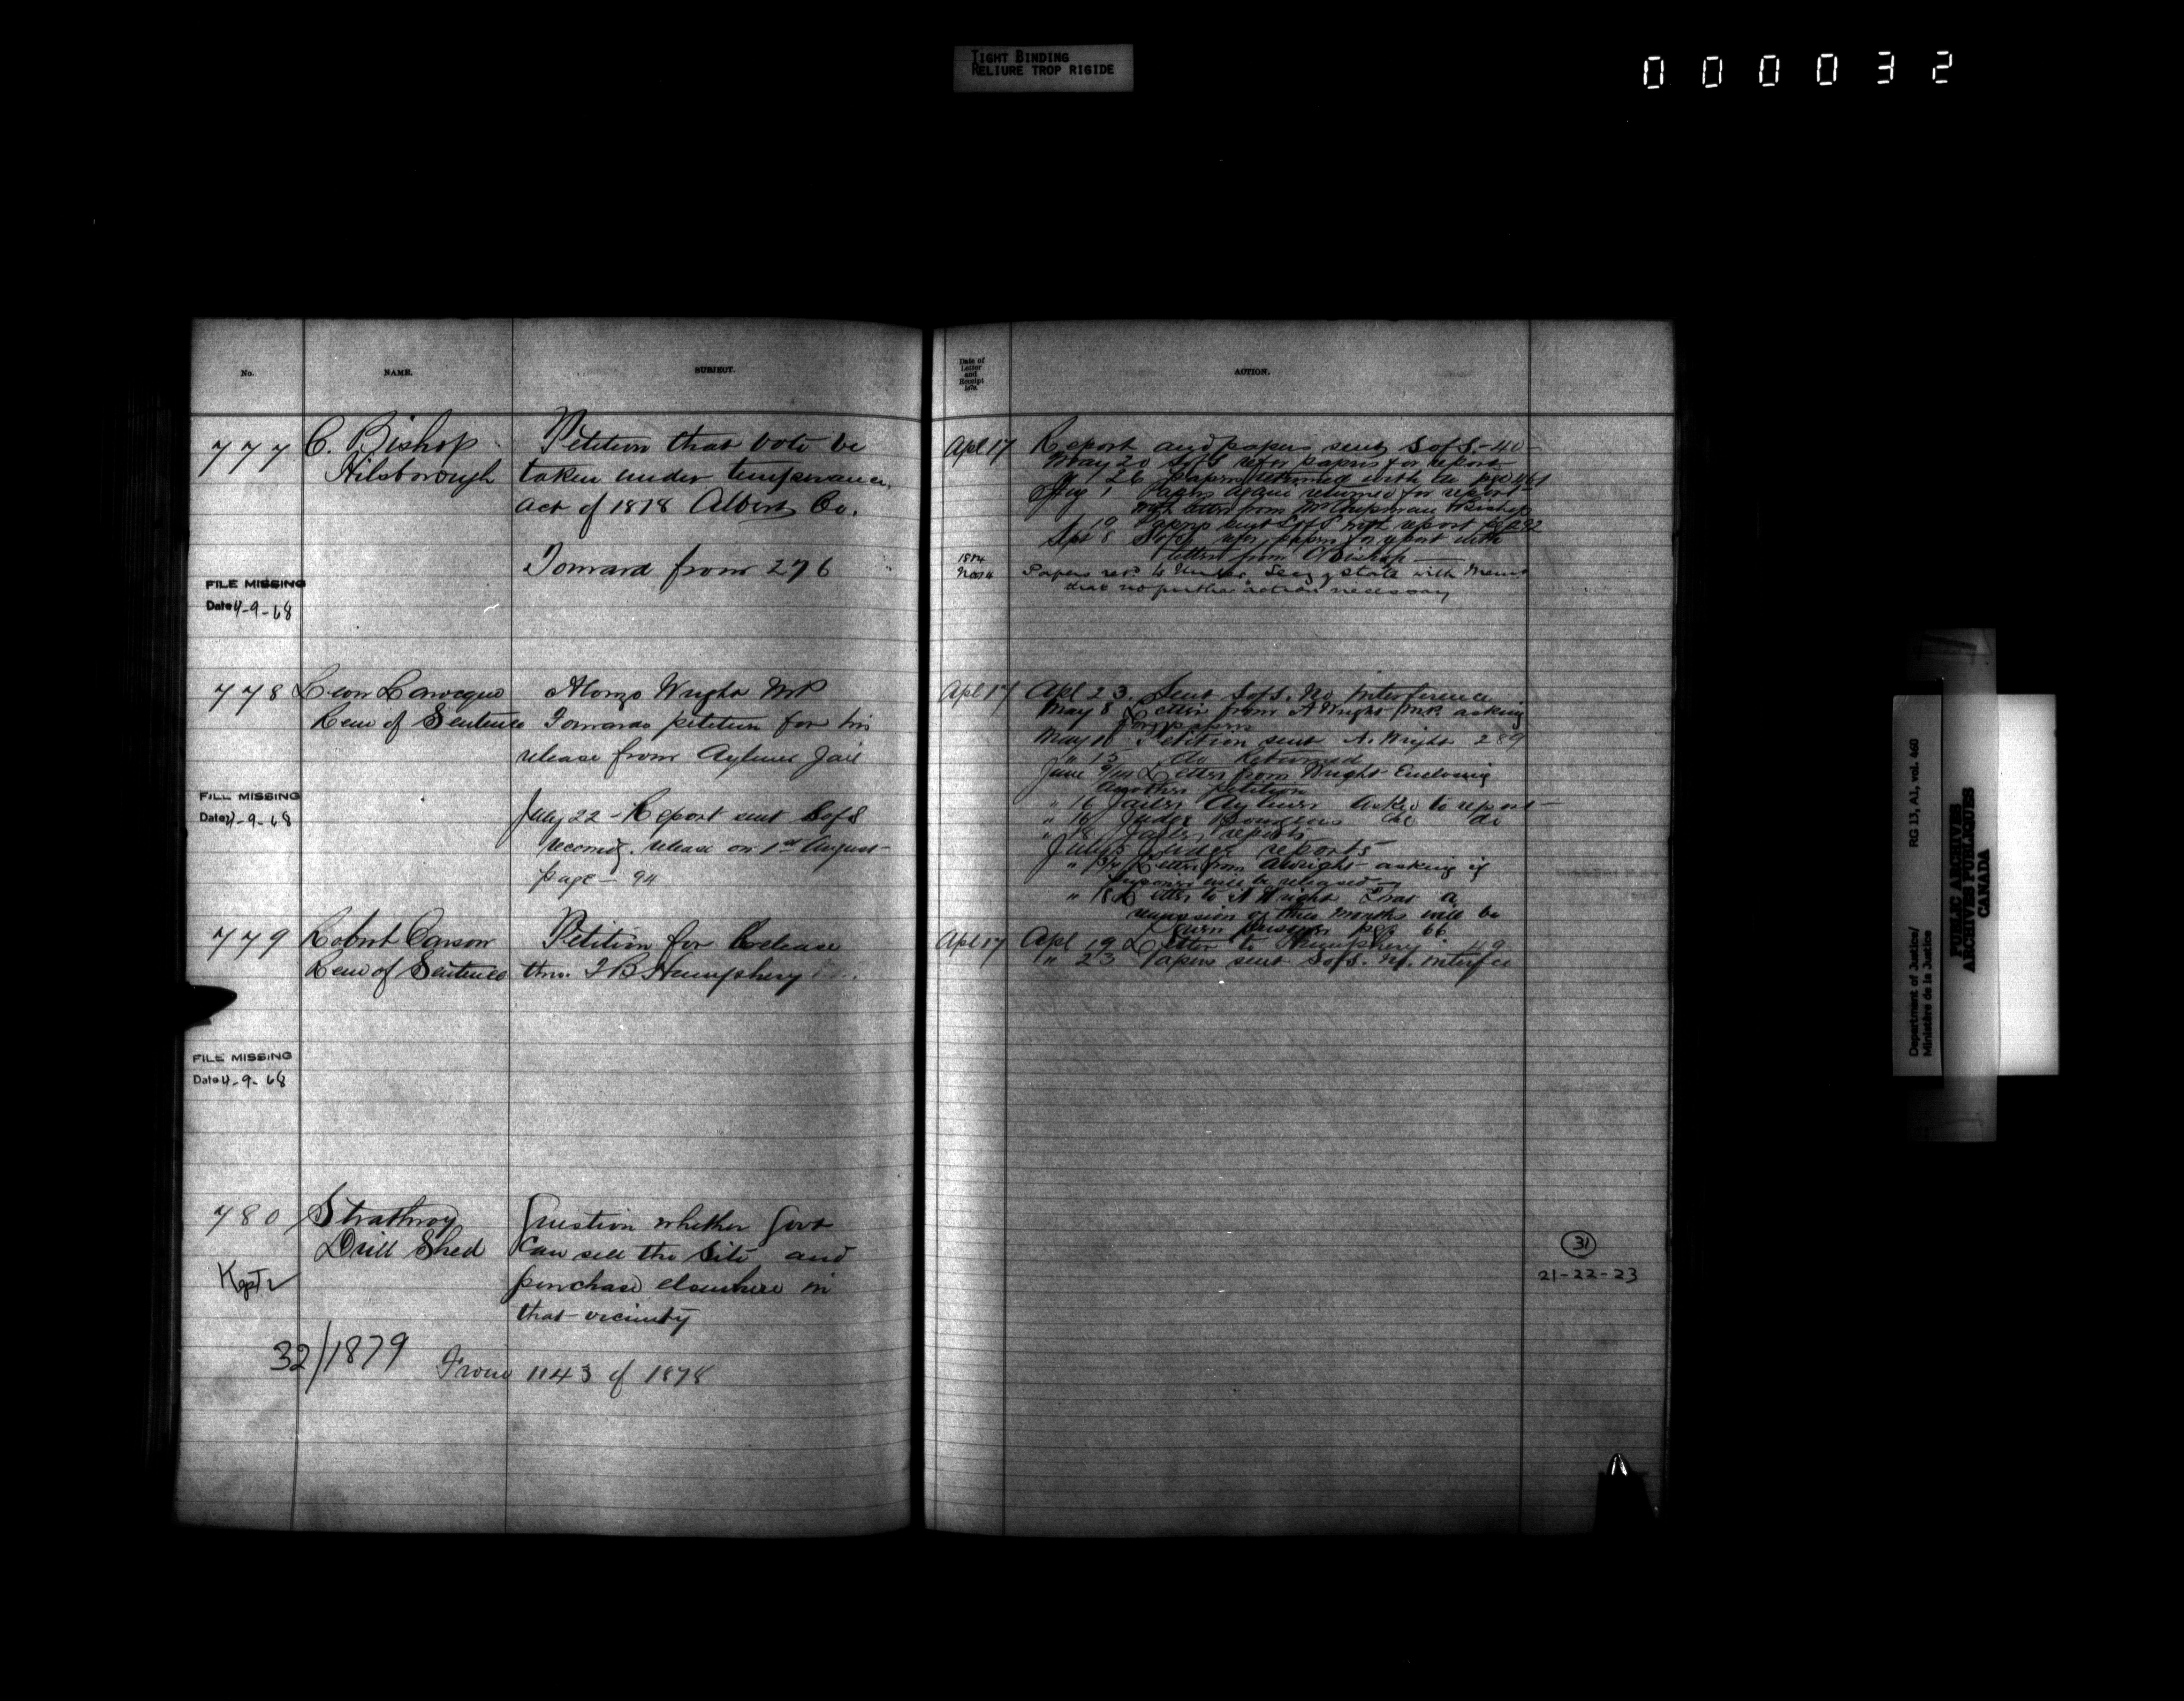 TIGHT BINDING
RELIURE TROP RIGIDE
000032
No.
NAME.
SUBJECT.
777
C. Bishop
Hilsborough
Petition that vote be
taken under temperance
act of 1878 Albert Co.
Forward from 276
FILE MISSING
Date 4-9-68
778
Leon Larocque
Rem of Sentence
Alonzo Wright MP
Forwards petition for his
release from Aylmer Jail
FILE MISSING
Date 4-9-68
July 22 - Report sent S of S
recomdg. release on 1st August
page - 94
779
Robert Carson
Rem of Sentence
Petition for Release
thro. T B Humphery
FILE MISSING
Date 4-9-68
780
Strathroy
Drill Shed
Question whether Govt
can sell the site and
purchase elsewhere in
that vicinity
Kept
32/1879
From 1143 of 1878
Date of
Letter
and
Receipt
187
ACTION.
Apl 17
Report and papers sent S of S - 40
May 20 S of S refer papers for report
" 26 Papers returned with pge 461
Aug 1 Papers again returned for report
with letter from Mr Chapman & Bishop
" 19 Papers sent S of S with report pge 292
Sept 8 S of S refer papers for report with
letter from C Bishop
Nov 4
Papers ret to Under Secy of State with Memo
that no further action necessary
Apl 17
Apl 23. Sent S of S. No Interference
May 8 Letter from A Wright M.P. asking
for papers
May Petition sent A. Wright 289
" 13 do Returned
June 9/14 Letter from Wright Enclosing
another petition
" 16 Jailer Aylmer Asked to report
" 16 Judge do do
" 18 Jailer reports
July 5 Judge reports
" Letter from A Wright asking if
prisoner will be released
" 18 Letter to A Wright that a
remission of three months will be
given prisoner pge 66
Apl 17
Apl 19 Letter to Humphery 49
" 23 Papers sent S of S. No. interfce
31
21-22-23
Department of Justice/
Ministère de la Justice
RG 13, A1, vol. 460
PUBLIC ARCHIVES
ARCHIVES PUBLIQUES
CANADA